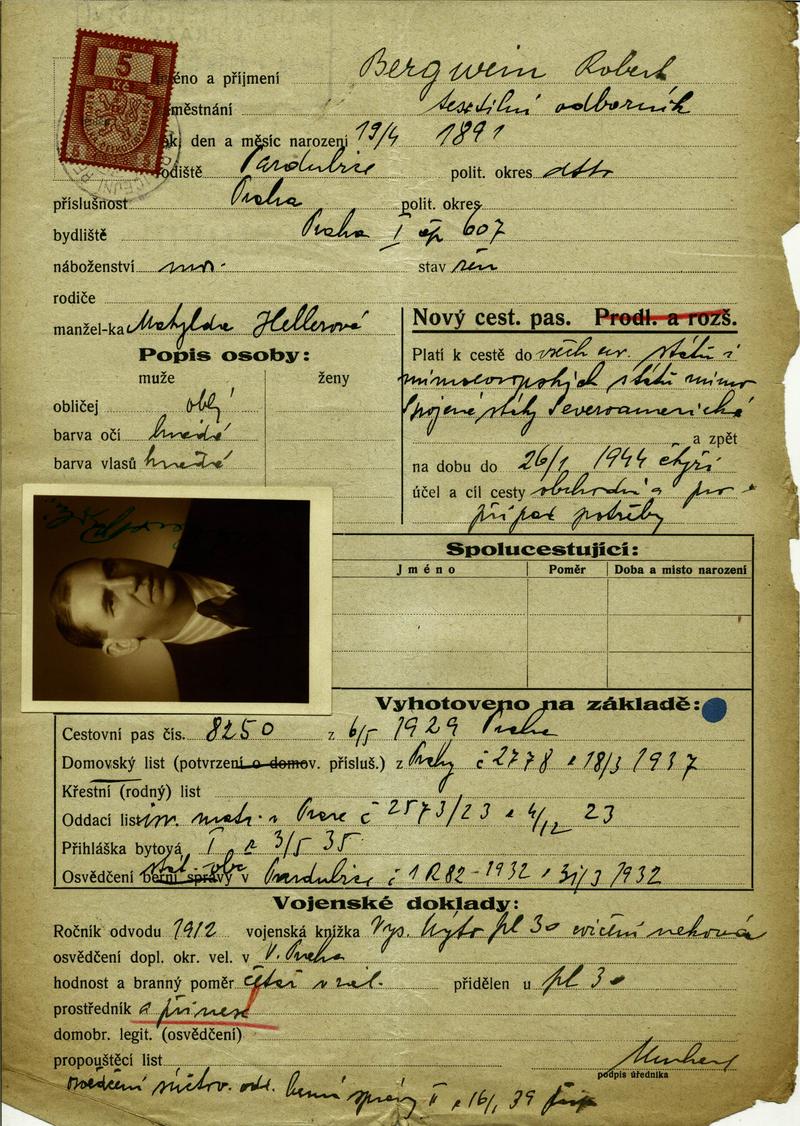 5
Kč
Jméno a příjmení Bergwein Robert
zaměstnání textilní odborník
rok, den a měsíc narození 19/4 1891
rodiště Pardubice polit. okres dtto
příslušnost Praha polit. okres
bydliště Praha I čp 607
náboženství stav žen
rodiče
manžel-ka Matylda Hellerová
Nový cest. pas. Prodl. a rozš.
Popis osoby:
muže ženy
obličej oblý
barva očí hnědé
barva vlasů hnědé
Platí k cestě do všech evr. států i
mimoevropských států mimo
Spojené státy Severoamerické
a zpět
na dobu do 26/1 1944 čtyři
účel a cíl cesty obchodní a pro
případ potřeby
Spolucestující:
Jméno Poměr Doba a místo narození
Vyhotoveno na základě:
Cestovní pas čís. 8250 z 6/5 1929 Praha
Domovský list (potvrzení o domov. přísluš.) z Prahy č 2778 z 18/3 1937
Křestní (rodný) list
Oddací list matr. v Praze č 2573/23 z 4/12 23
Přihláška bytová I z 3/5 35
Osvědčení berní správy v stát. obč Pardubice č 1R82-1932 z 31/3 1932
Vojenské doklady:
Ročník odvodu 1912 vojenská knížka Vys. Mýto pl 30 cvičení nekoná
osvědčení dopl. okr. vel. v V. Praha
hodnost a branný poměr četař v zál. přidělen u pl 30
prostředník a přinesl
domobr. legit. (osvědčení)
propouštěcí list
podpis úředníka
osvědčení odd. berní správy II z 16/1 39